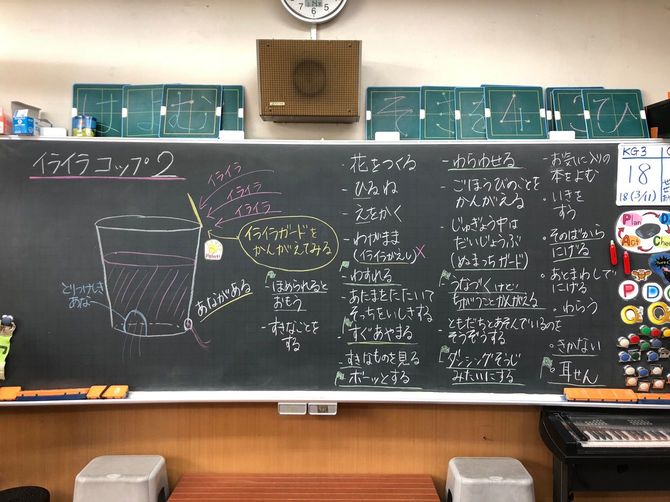 イライラコップ2
イライラ
イライラ
イライラ
イライラガードを
かんがえてみる
とりつけしき
あな
あながある
ほめられると
おもう
・すきなことを
する
・花をつくる
・ひるね
・えをかく
・わがまま
(イライラがえし)×
・わすれる
・あたまをたたいて
そっちをいしきする
・すぐあやまる
・すきなものを見る
・ボーッとする
・わらわせる
・ごほうびのことを
かんがえる
・じゅぎょう中は
だいじょうぶ
(ぬまっちガード)
・うなづくけど
ちがうことかんがえる
・ともだちとあそんでいるのを
そうぞうする
・ダンシングそうじ
みたいにする
・お気に入りの
本をよむ
・いきを
すう
・そのばから
にげる
・あとまわしで
にげる
・わらう
・きかない
・耳せん
KG3
18
18(3/11)
Plan
Act
Chec
P
D
そ
4
ひ
む
は